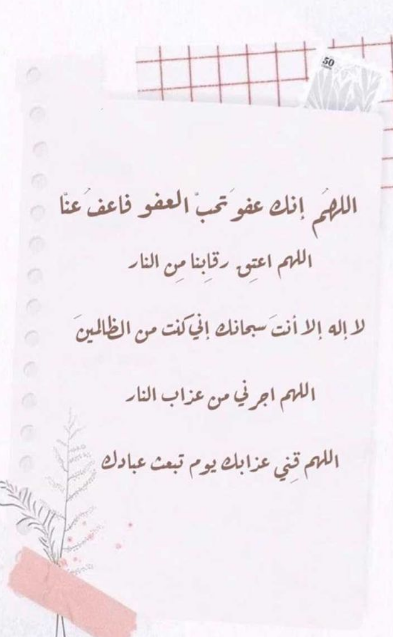 50
اللهُم إنك عفوَ تحبّ العفو فاعفُ عنّا
اللهم اعتِق رقابِنا مِن النار
لا إله إلا أنتَ سبحانك إني كنت من الظالمينَ
اللهم اجرني من عزاب النار
اللهم قِني عزابك يوم تبعث عبادك